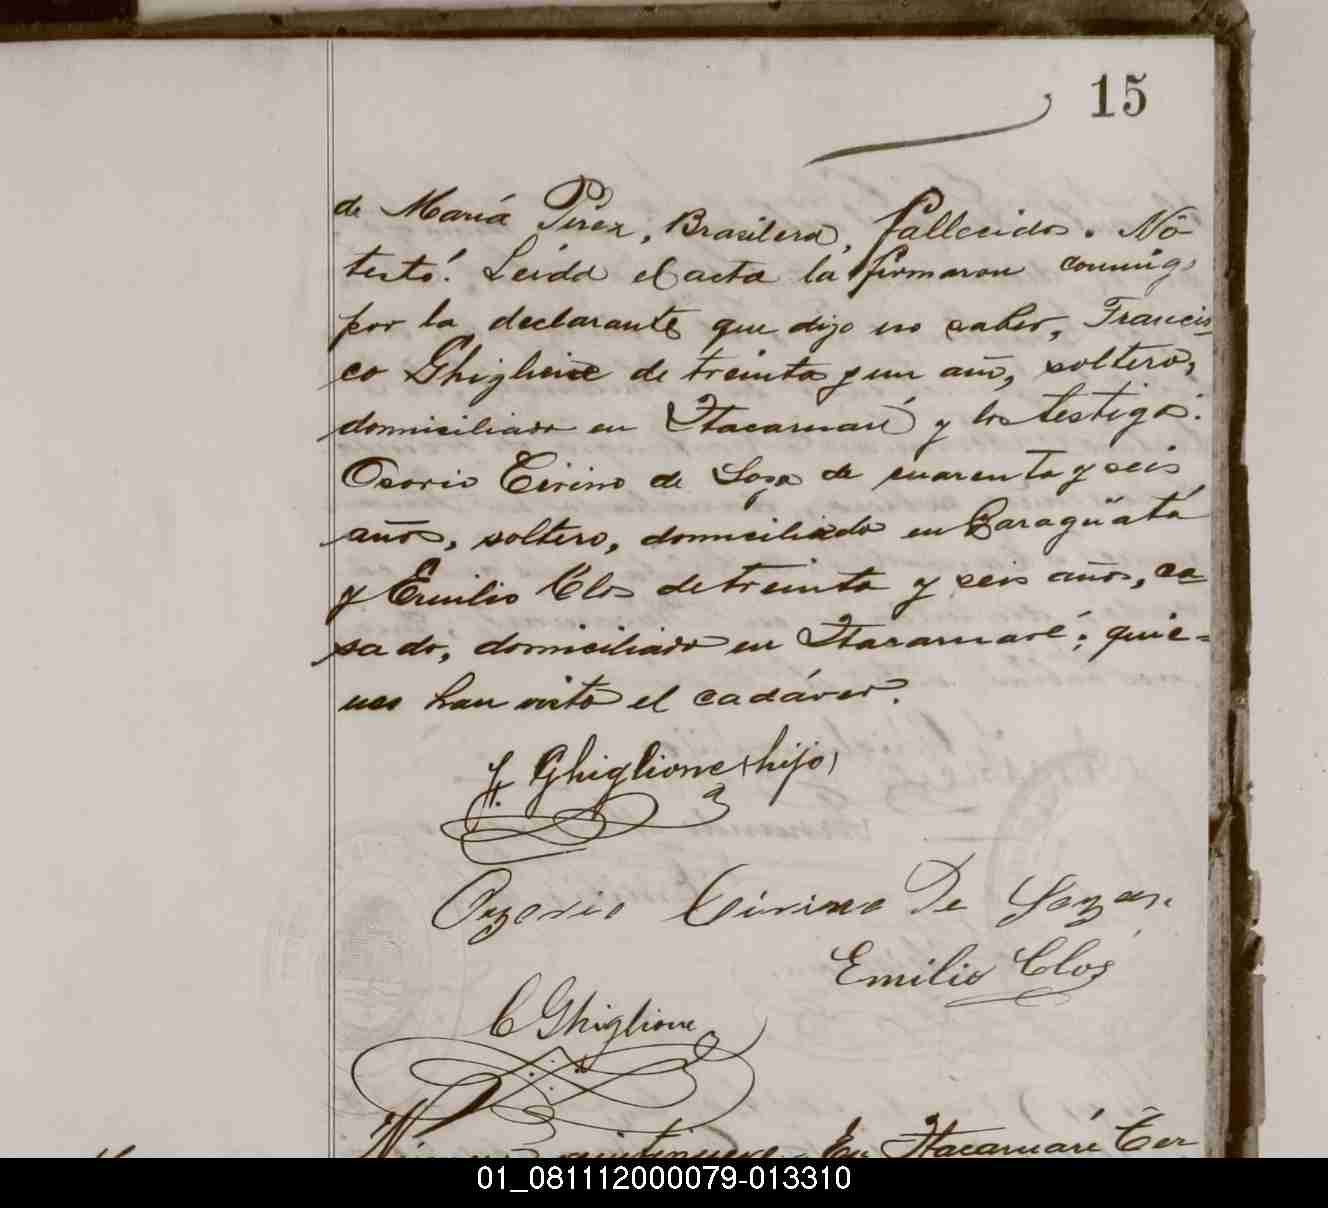 15
de María Pérez, Brasilera, fallecidos. No
testó. Leida el acta la firmaron conmigo
por la declarante que dijo no saber, Francis-
co Ghiglione de treinta y un año, soltero,
domiciliado en Itacarumí y los testigos:
Osorio Cirino de Soza de cuarenta y seis
años, soltero, domiciliado en Caragüatá
y Emilio Clos de treinta y seis años, ca-
sado, domiciliado en Itacaruaré; quie=
nes han visto el cadáver.
F. Ghiglione (hijo)
Ozorio Cirino De Sozar.
Emilio Clos
C Ghiglione
En Itacaruaré Ter
01_081112000079-013310